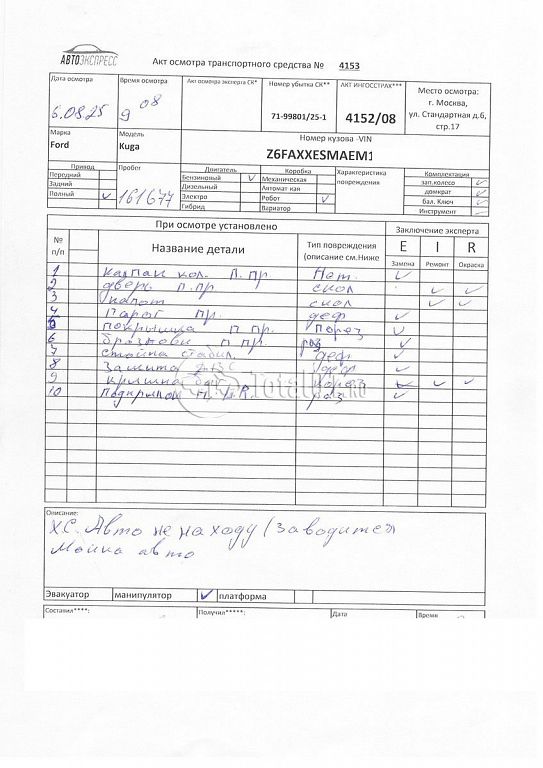 АВТОЭКСПРЕСС
Акт осмотра транспортного средства № 4153
Дата осмотра
6.08.25
Время осмотра
9 08
Акт осмотра эксперта СК*
Номер убытка СК**
71-99801/25-1
АКТ ИНГОССТРАХ***
4152/08
Место осмотра:
г. Москва,
ул. Стандартная д.6,
стр.17
Марка
Ford
Модель
Kuga
Номер кузова -VIN
Z6FAXXESMAEM1
Привод
Передний
Задний
Полный ✓
Пробег
161677
Двигатель
Бензиновый ✓
Дизельный
Электро
Гибрид
Коробка
Механическая
Автомат кая
Робот ✓
Вариатор
Характеристика
повреждения
Комплектация
зап.колесо ✓
домкрат ✓
бал. Ключ ✓
Инструмент
При осмотре установлено
Заключение эксперта
№
п/п
Название детали
Тип повреждения
(описание см.Ниже
E I R
Замена Ремонт Окраска
1 колпак кол. П.пр. Нет. ✓
2 дверь п.пр. скол ✓ ✓
3 капот скол ✓ ✓
4 Порог пр. деф ✓
5 покрышка п пр. Порез ✓
6 п пр. раз ✓
7 стойка стабил. деф ✓
8 Защита ДВС деф ✓
9 крышка ✓ ✓
10 раз ✓
TotalKit.ru
Описание:
ХС. Авто не на ходу (Заводится
Мойка авто
Эвакуатор манипулятор ✓ платформа
Составил****: Получил*****: Дата Время